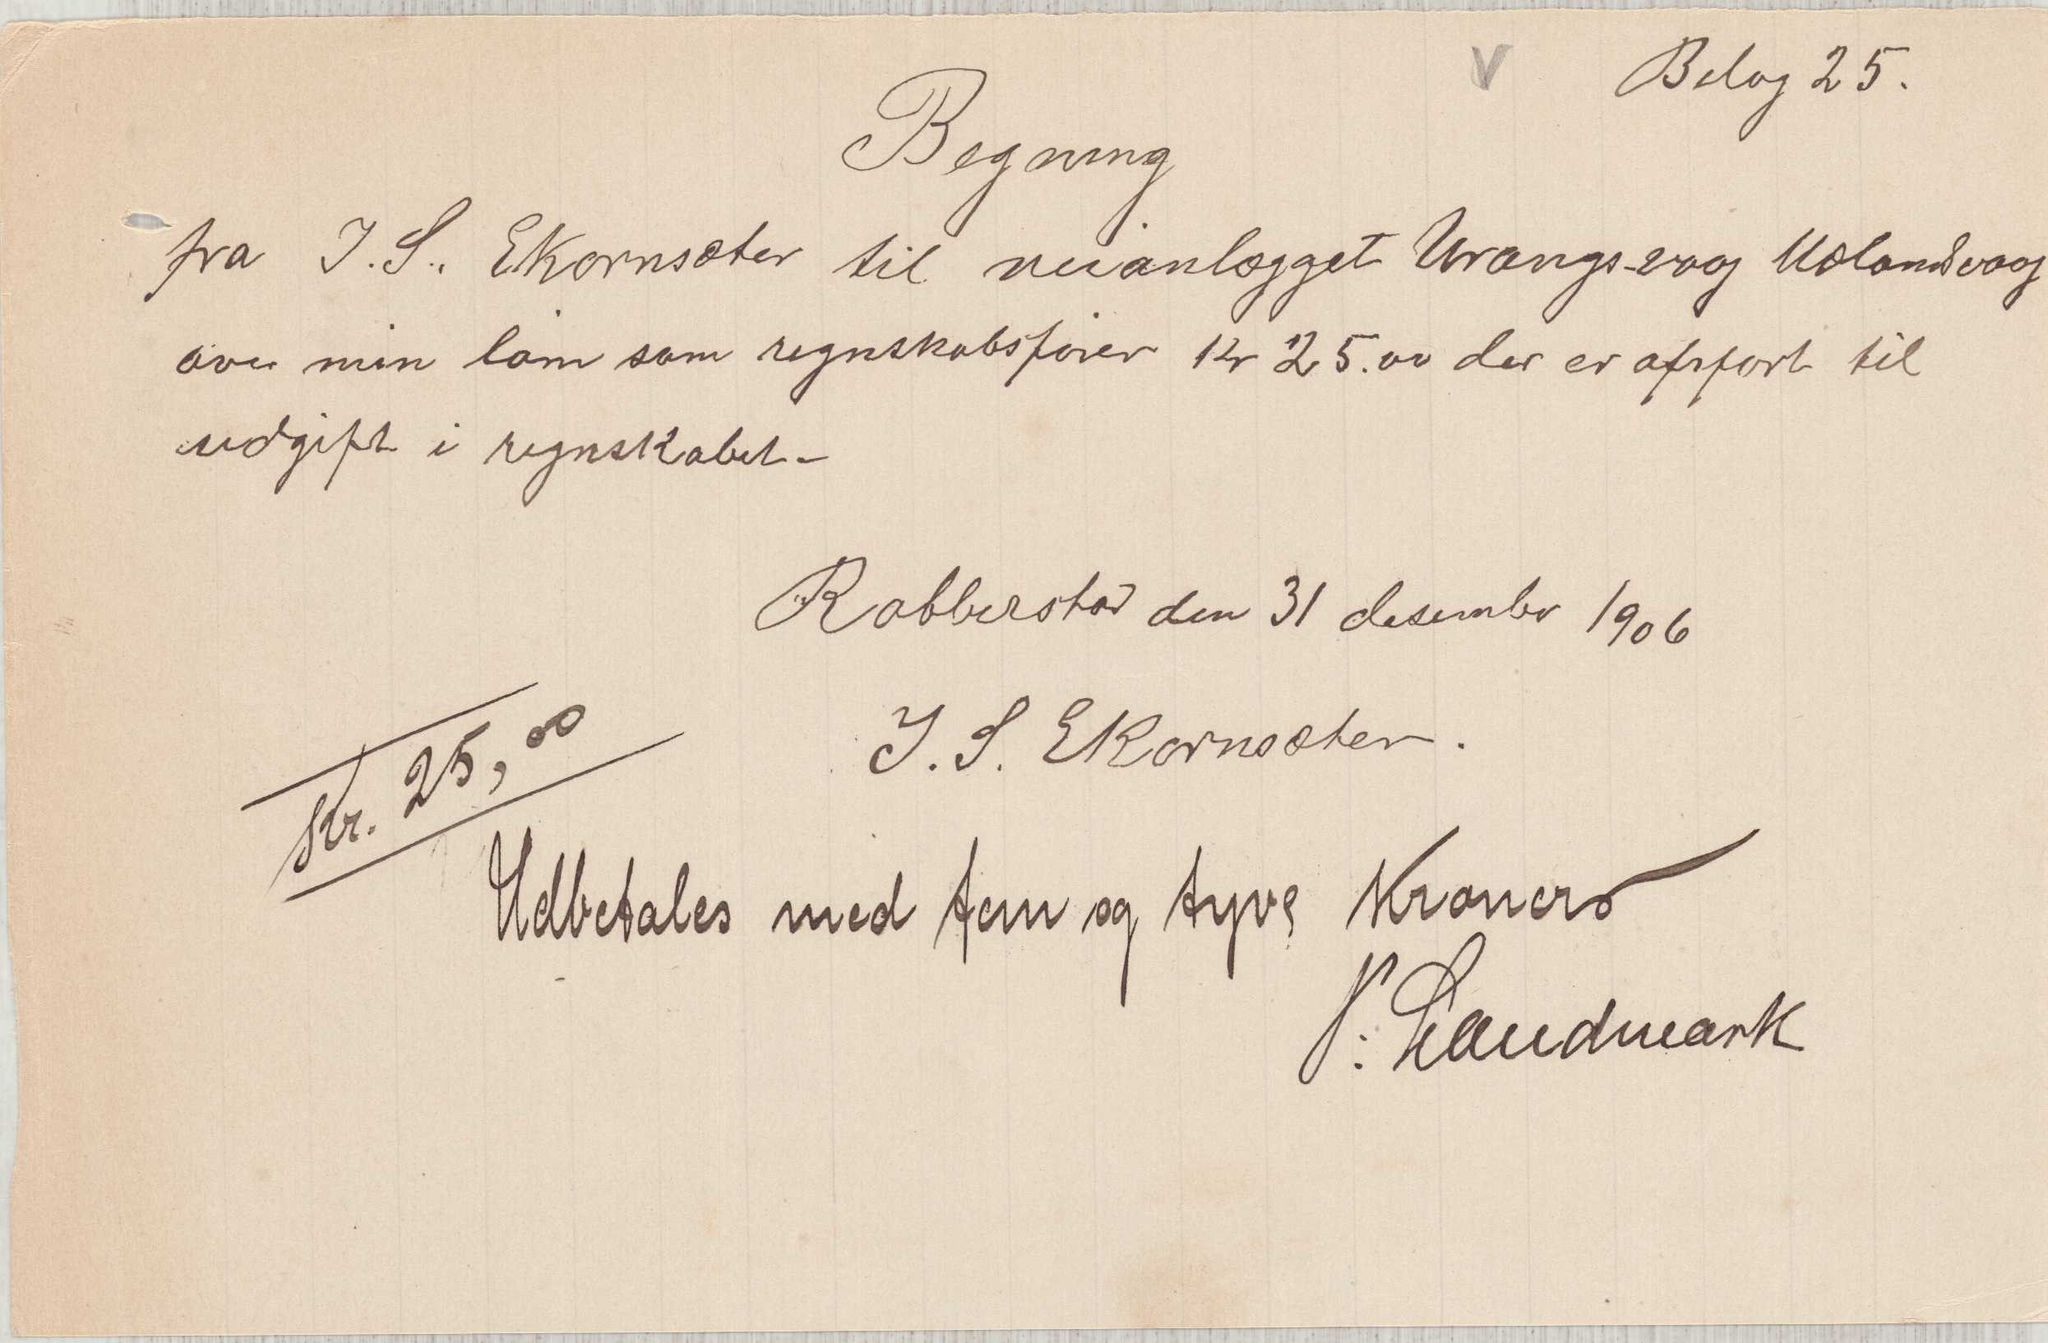 V Belag 25.
Regning
fra I. S. Ekornsæter til veianlægget Vrangsvaag Mælandsvaag
över min løin som regnskabsfører Kr 25.00 der er afsført til
udgift i regnskabet-
Rabberstad den 31 desember 1906
I. S. Ekornsæter.
Kr. 25,00
Udbetales med fem og tyve Kroner
P. Landmark